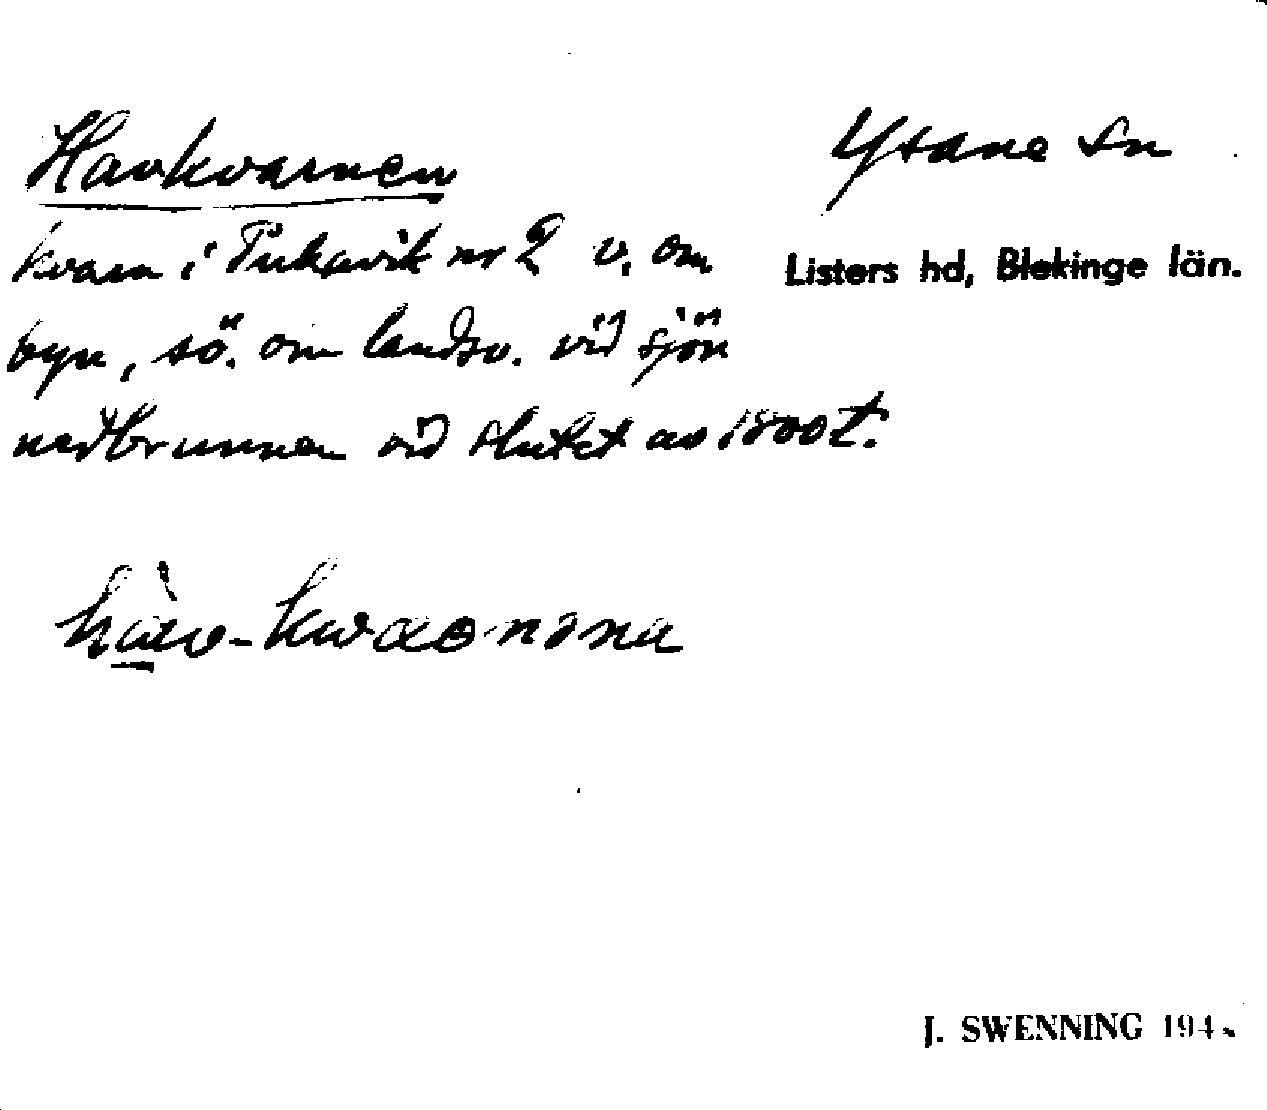 Havkvarnen
Ysane sn
Listers hd, Blekinge län.
kvarn i Pukavik nr 2 v. om
byn, sö. om landsv. vid sjön
nedbrunnen vid slutet av 1800t.
J. SWENNING 194